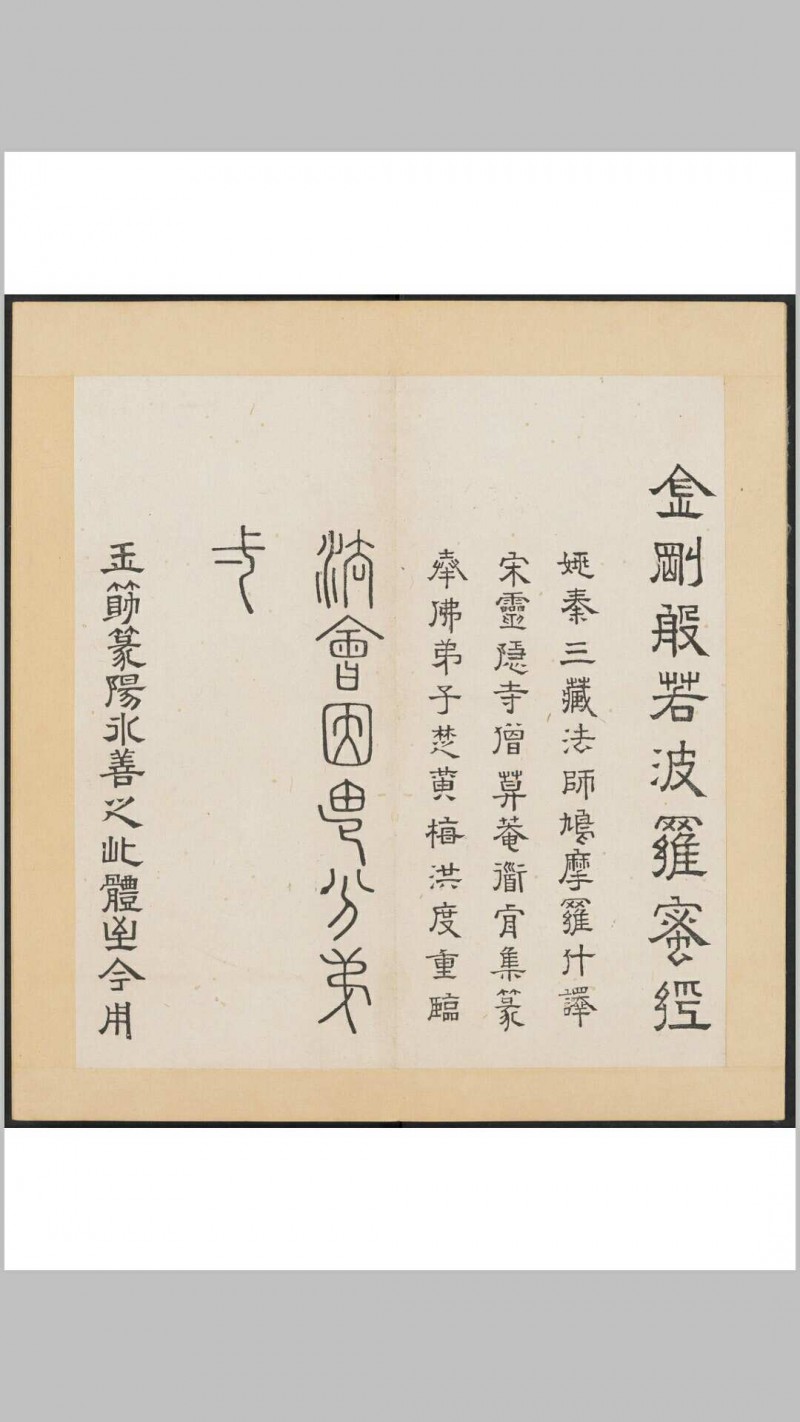 金剛般若波羅蜜經
姚秦三藏法師鳩摩羅什譯
宋靈隱寺僧莫菴道肯集篆
奉佛弟子楚黃梅洪度重臨
法會因由分第
弌
玉筯篆陽冰善之此體至今用